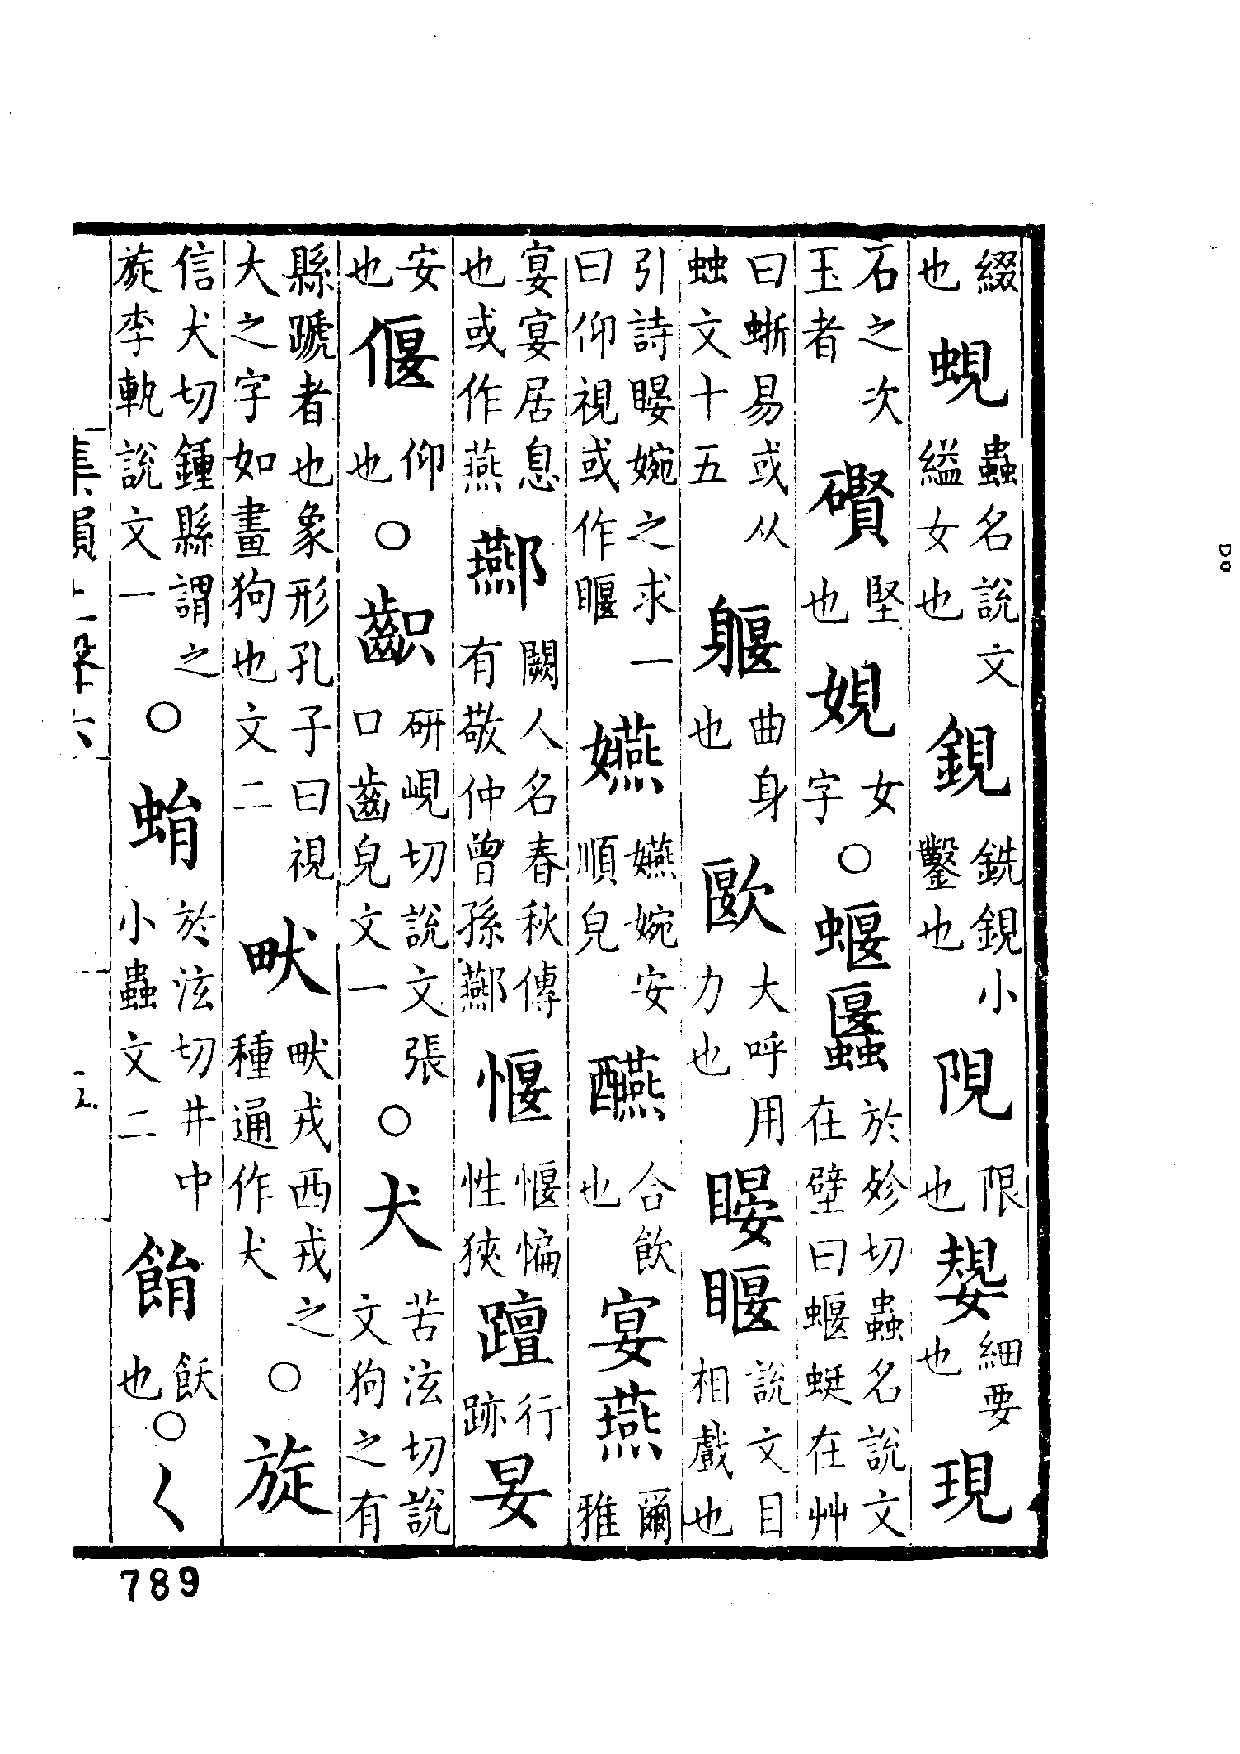 綴也蜆蟲名說文縊女也鋧銑鋧小鑿也𨺩限也嫢細要也現
石之次玉者礥堅也娊女字○蝘𧕅於殄切蟲名說文在壁曰蝘蜓在艸
曰蜥易或从䖵文十五軀曲身也歐大呼用力也䁙䁙說文目相戲也
引詩䁙婉之求一曰仰視或作䁙嬿嬿婉安順皃醼合飲也宴燕爾雅
宴宴居息也或作燕酀闕人名春秋傳有敬仲曾孫酀愝愝惼性狹躽行跡晏
安也偃仰也○齞研峴切說文張口齒皃文一○犬苦泫切說文狗之有
縣蹏者也象形孔子曰視犬之字如畫狗也文二畎畎戎西戎之種通作犬○旋
信犬切鍾縣謂之旋李軌說文一○蜎於泫切井中小蟲文二䬼飫也○𡿨
集韻上聲六
789